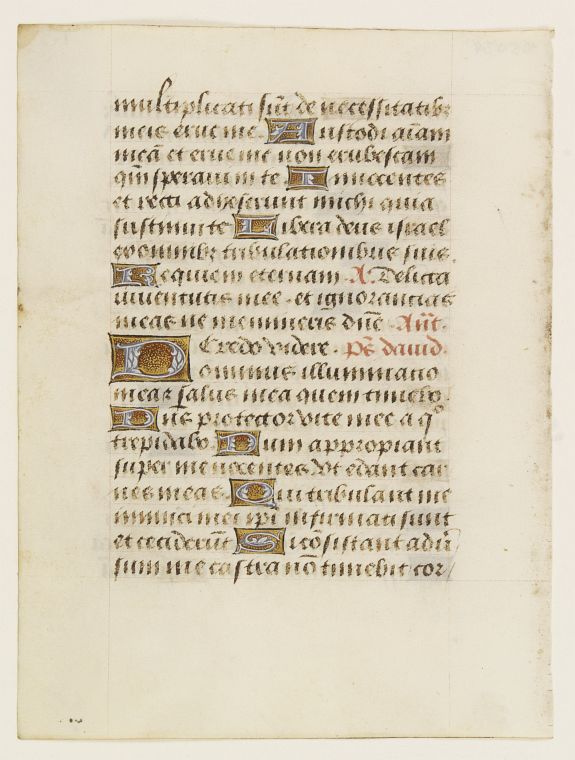 multiplicati sūt de necessitatibz
meis erue me. Austodi aīam
meā et erue me non erubescam
qm̄ speraui in te. Innocentes
et recti adheserunt michi quia
sustinui te. Libera deus israel
ex omnibz tribulationibus suis.
Requiem eternam. A. Delicta
iuuentutis mee. et ignorancias
meas ne memineris dn̄e. Añt.
Credo videre. ps̄ dauid.
Dominus illuminatio
mea et salus mea quem timebo.
Dn̄s protector vite mee a qº
trepidabo. Dum appropiant
super me nocentes vt edant car
nes meas. Qui tribulant me
inimici mei ipi infirmati sunt
et ceciderūt. Si cōsistant aduer
sum me castra nō timebit cor